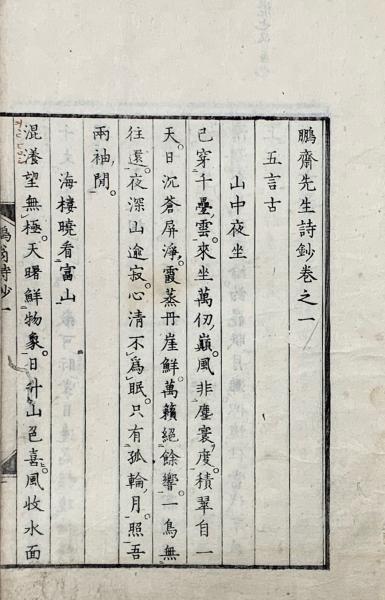 鵬齋先生詩鈔卷之一
五言古
山中夜坐
已穿千疊雲。來坐萬仞巔。風非塵寰度。積翠自一
天。日沉蒼屏淨。霞蒸丹崖鮮。萬籟絕餘響。一鳥無
往還。夜深山逾寂。心清不爲眠。只有孤輪月。照吾
兩袖閒。
海棲曉看富山
混瀁望無極。天曙鮮物象。日升山色喜。風收水面
詩鈔一